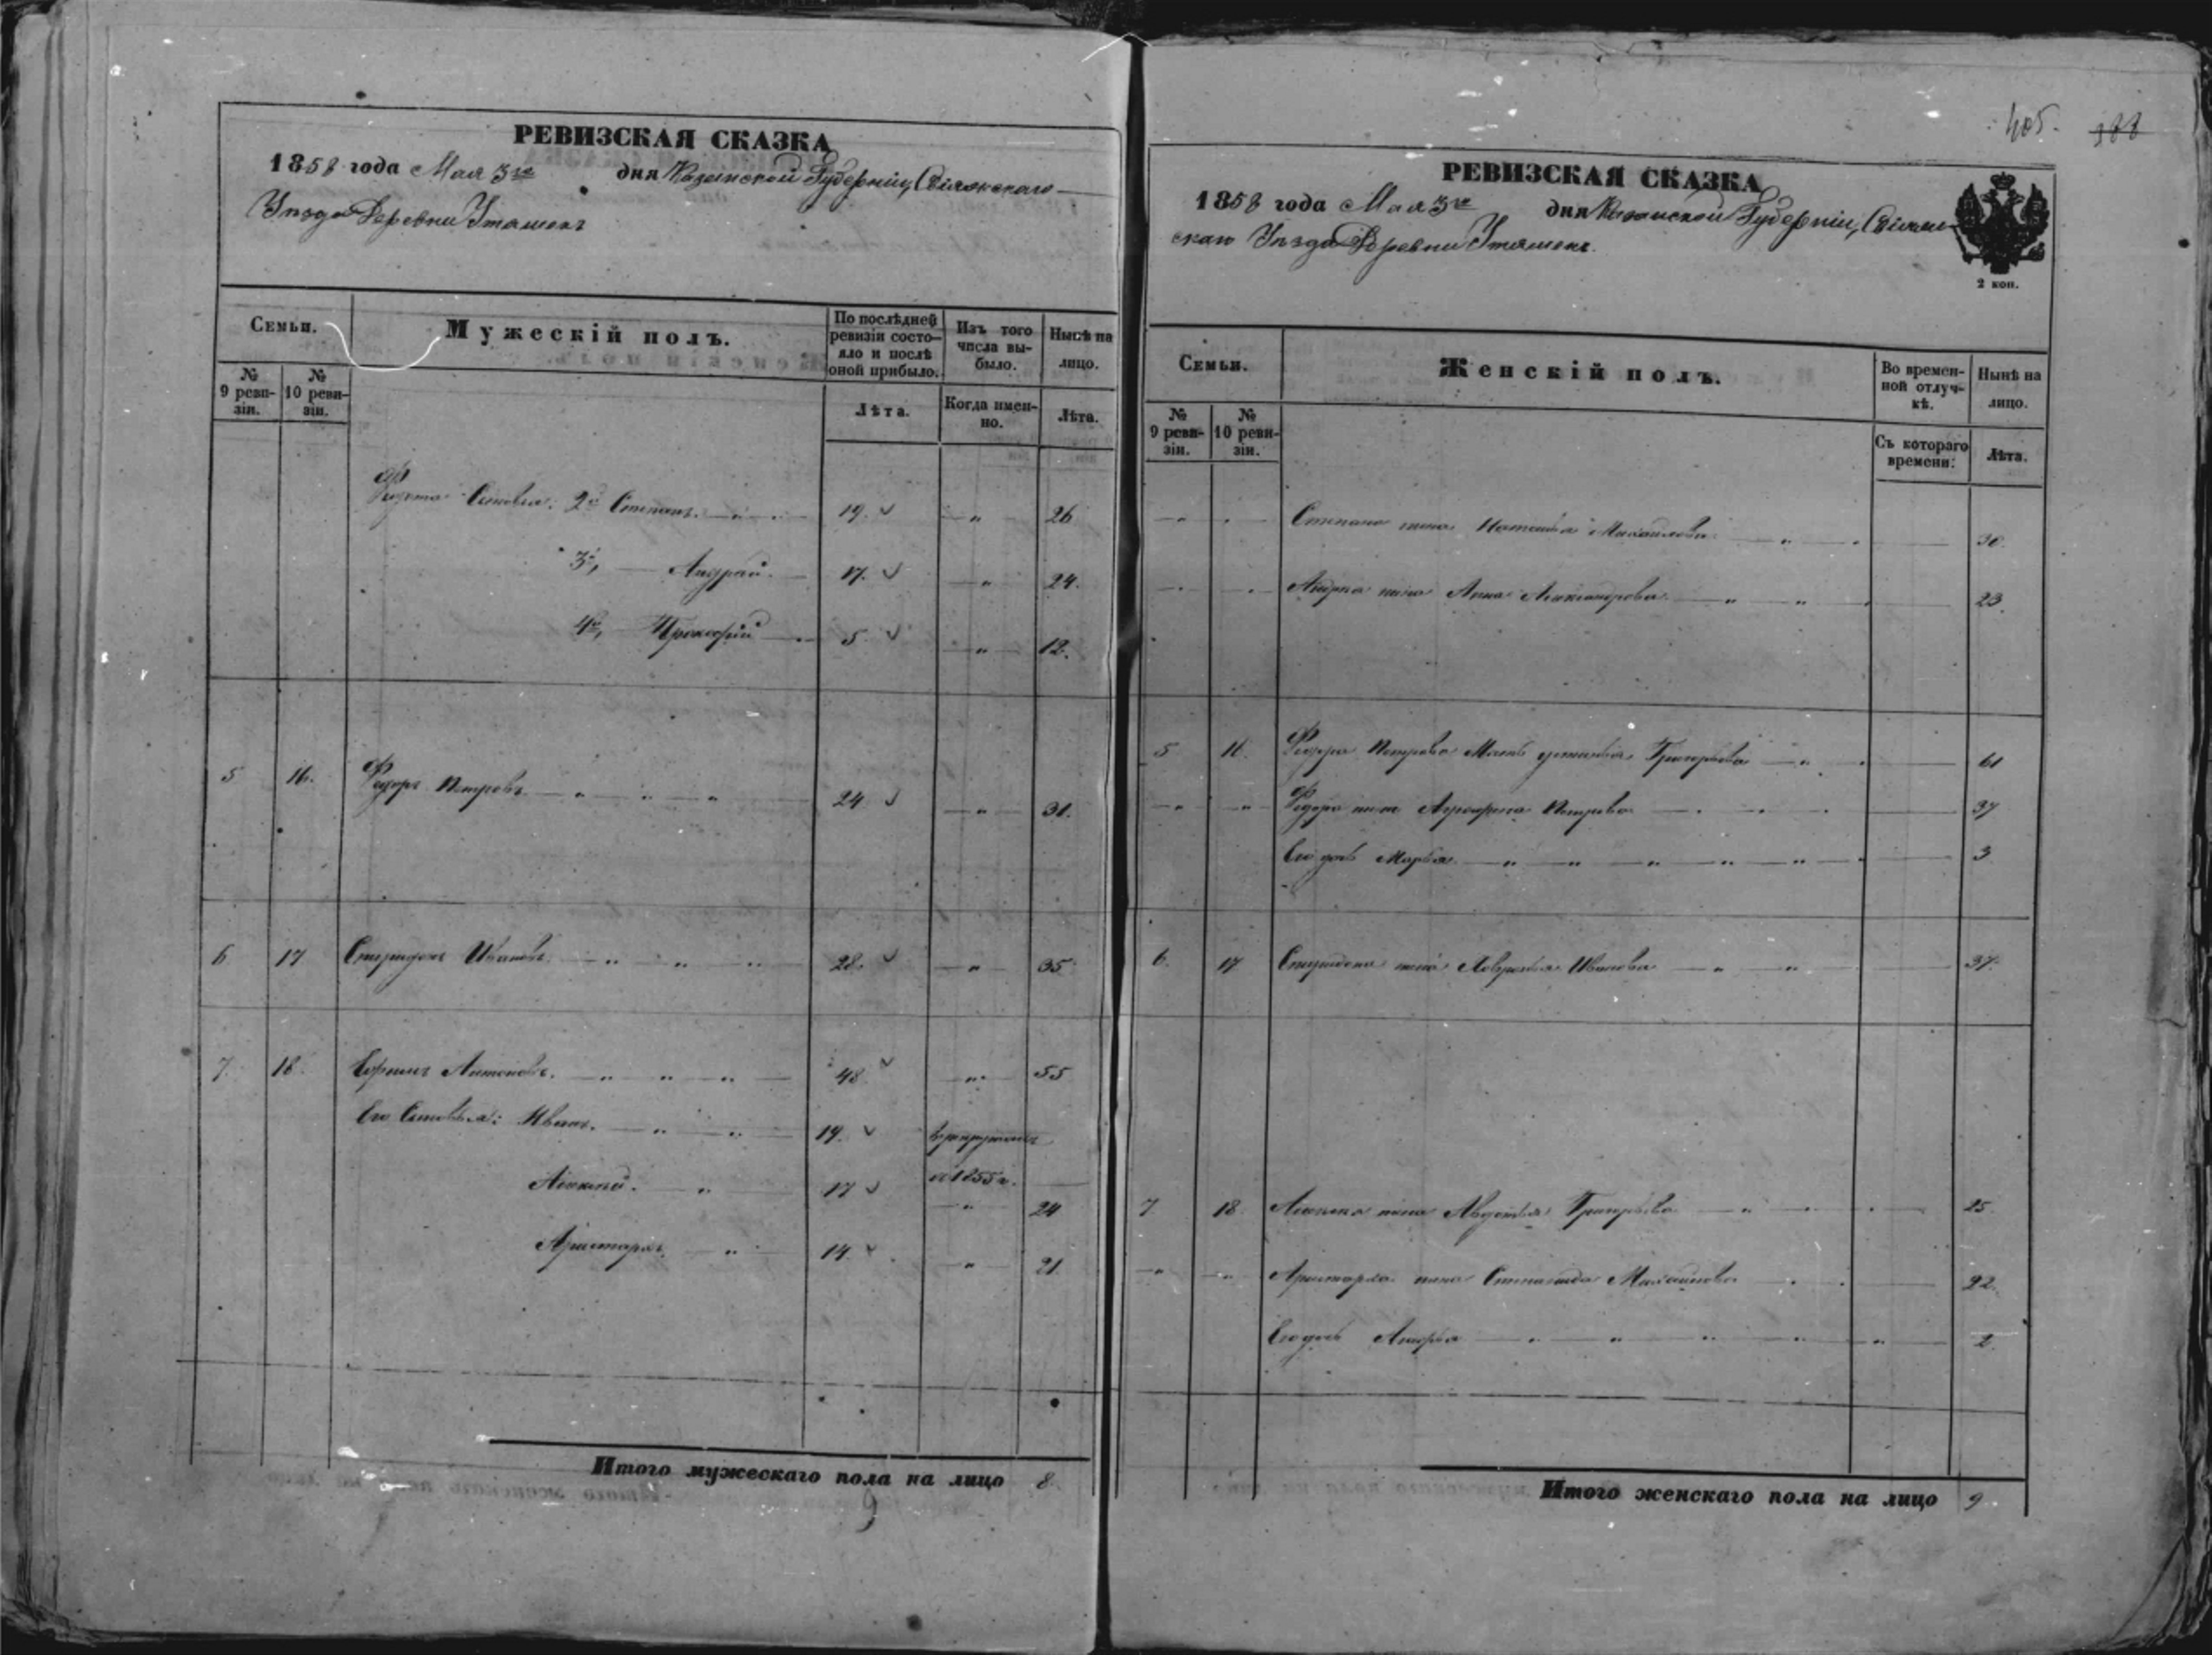 РЕВИЗСКАЯ СКАЗКА
1858 года Мая 3го дня Казанской Губерніи, Свіяжскаго
Уѣзда Деревни Утяшекъ
Семьи.
Мужескій полъ.
По послѣдней ревизіи состояло и послѣ оной прибыло.
Изъ того числа выбыло.
Нынѣ на лицо.
№ 9 ревизіи.
№ 10 ревизіи.
Лѣта.
Когда именно.
Лѣта.
Сыновья: 2й Степанъ. 19. " 26
3й, Андрей. 17. " 24.
4й, Прокофій 5 " 12.
5 16. Федоръ Петровъ 24 " 31.
6 17 Спиридонъ Ивановъ 28. " 35
7. 18. Ефимъ Антоновъ. 48. " 55
Его Сыновья: Иванъ. 19.
в рекрутахъ
съ 1855 г.
Алексѣй. 17 " 24
Аристархъ. 14. " 21.
Итого мужескаго пола на лицо 8.
9
405. 388
РЕВИЗСКАЯ СКАЗКА
1858 года Мая 3го дня Казанской Губерніи, Свіяж-
скаго Уѣзда Деревни Утяшекъ.
2 коп.
Семьи.
Женскій полъ.
Во временной отлучкѣ.
Нынѣ на лицо.
№ 9 ревизіи.
№ 10 ревизіи.
Съ котораго времени.
Лѣта.
Степана жена Наталья Михайлова 30.
Андрея жена Анна Александрова 23.
5 16. Федора Петрова Мать Устинья Григорьева 61
" " Федора жена Агрофена Петрова 37
Его дочь Марья 3
6. 17 Спиридона жена Ивановa 37.
7. 18. Алексѣя жена Авдотья Григорьева 25.
" " Аристарха жена Степанида Михайлова 22.
Его дочь 2.
Итого женскаго пола на лицо 9.